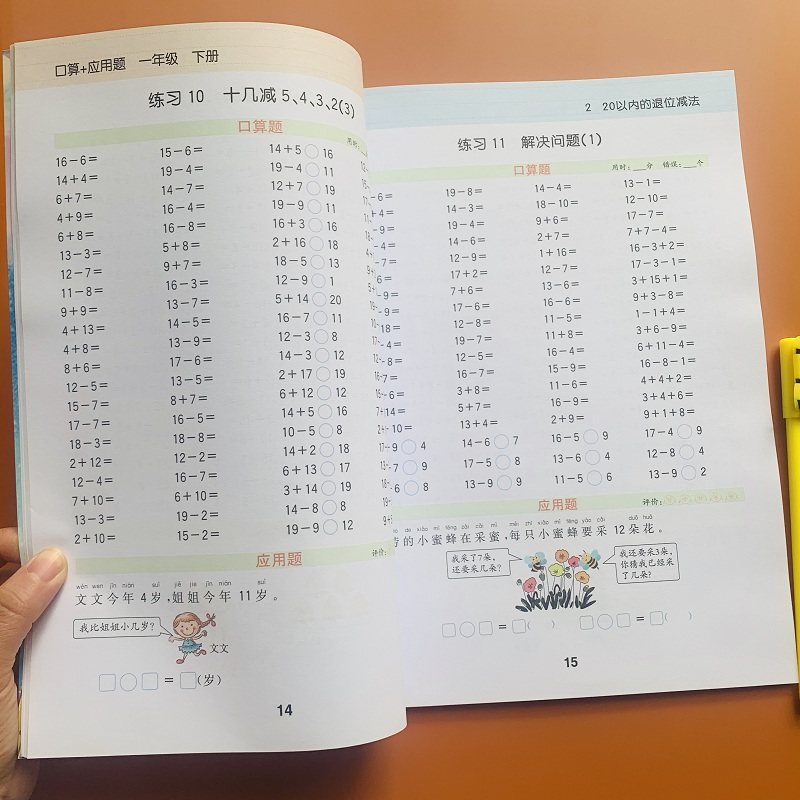 口算+应用题 一年级 下册
练习 10 十几减 5、4、3、2(3)
口算题
用时:
16－6＝ 15－6＝ 14＋5○16
14＋4＝ 19－4＝ 19－4○11
6＋7＝ 14－7＝ 12＋7○19
4＋9＝ 16－4＝ 19－9○11
6＋8＝ 16－8＝ 16＋3○16
13－3＝ 5＋8＝ 2＋16○18
12－7＝ 9＋7＝ 18－5○13
11－8＝ 16－3＝ 12－9○1
9＋9＝ 13－7＝ 5＋14○20
4＋13＝ 14－5＝ 16－7○11
4＋8＝ 13－9＝ 12－3○8
8＋6＝ 17－6＝ 14－3○12
12－5＝ 13－5＝ 2＋17○19
15－7＝ 8＋7＝ 6＋12○12
17－7＝ 16－5＝ 14＋5○16
18－3＝ 18－8＝ 10－5○8
2＋12＝ 12－2＝ 14＋2○18
12－4＝ 16－7＝ 6＋13○17
7＋10＝ 6＋10＝ 3＋14○19
13－3＝ 19－2＝ 14－8○8
2＋10＝ 15－2＝ 19－9○12
应用题
评价:
wén wen jīn nián suì jiě jie jīn nián suì
文文今年 4 岁,姐姐今年 11 岁。
我比姐姐小几岁?
文文
□○□＝□(岁)
14
2 20以内的退位减法
练习 11 解决问题(1)
口算题
用时:___分 错误:___个
－6＝ 19－8＝ 14－4＝ 13－1＝
＋4＝ 14－3＝ 18－10＝ 12－10＝
－9＝ 19－4＝ 9＋6＝ 17－7＝
－4＝ 14－6＝ 2＋7＝ 7＋7－4＝
－7＝ 12－9＝ 1＋16＝ 16－3＋2＝
17＋2＝ 12－7＝ 17－3－1＝
－9＝ 7＋6＝ 13－6＝ 3＋15＋1＝
－9＝ 17－6＝ 16－6＝ 9＋3－8＝
18＝ 12－8＝ 11－5＝ 1－1＋4＝
－4＝ 19－7＝ 11＋8＝ 3＋6－9＝
－8＝ 12－5＝ 16－4＝ 6＋11－4＝
7＝ 16－7＝ 15－9＝ 16－8－1＝
6＝ 3＋8＝ 11－6＝ 4＋4＋2＝
14＝ 5＋7＝ 16－9＝ 3＋4＋6＝
10＝ 13＋4＝ 2＋9＝ 9＋1＋8＝
9○4 14－6○7 16－5○9 17－4○9
7○9 17－5○8 13－6○4 12－8○4
6○8 13－9○9 11－5○6 13－9○2
应用题
评价:
de xiǎo mì fēng zài cǎi mì měi zhī xiǎo mì fēng yào cǎi duǒ huā
的小蜜蜂在采蜜,每只小蜜蜂要采 12 朵花。
我采了7朵,
还要采几朵?
我还要采3朵,
你猜我已经采
了几朵?
□○□＝□( ) □○□＝□( )
15